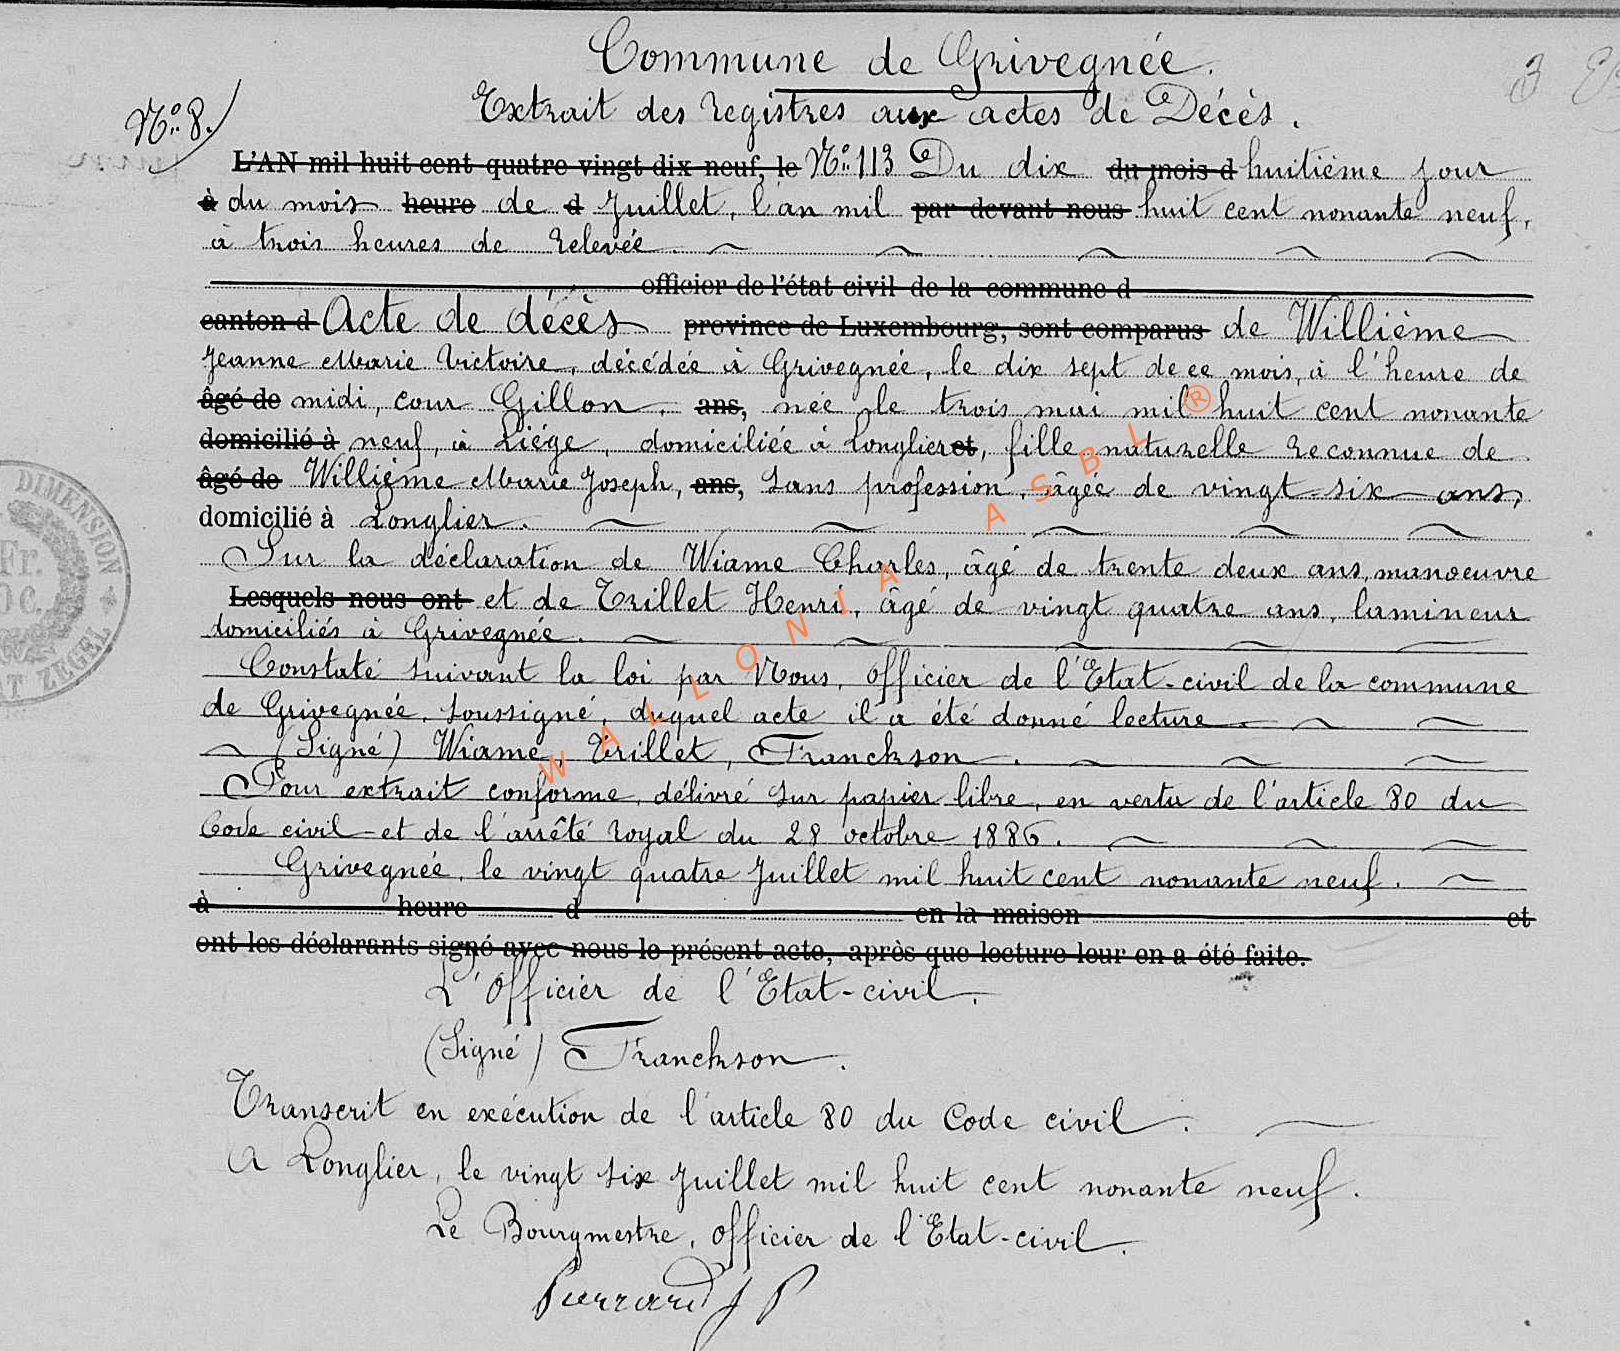 Commune de Grivegnée.
Extrait des registres aux actes de Décès.
N° 8.
L'AN mil huit cent quatre vingt dix neuf, le N° 113 Du dix du mois d huitième jour
à du mois heure de d Juillet, l'an mil par devant nous huit cent nonante neuf,
à trois heures de relevée.
officier de l'état civil de la commune d
canton d Acte de décès province de Luxembourg, sont comparus de Willième
Jeanne Marie Victoire, décédée à Grivegnée, le dix sept de ce mois, à l'heure de
âgé de midi, cour Gillon, ans, née le trois mai mil huit cent nonante
domicilié à neuf, à Liége, domiciliée à Longlier et, fille naturelle reconnue de
âgé de Willième Marie Joseph, ans, sans profession, âgée de vingt-six ans,
domicilié à Longlier.
Sur la déclaration de Wiame Charles, âgé de trente deux ans, manœuvre
Lesquels nous ont et de Trillet Henri, âgé de vingt quatre ans, lamineur
domiciliés à Grivegnée.
Constaté suivant la loi par Nous, Officier de l'Etat-civil de la commune
de Grivegnée, soussigné, duquel acte il a été donné lecture.
(Signé) Wiame, Trillet, Franckson.
Pour extrait conforme, délivré sur papier libre, en vertu de l'article 80 du
Code civil et de l'arrêté royal du 28 octobre 1886.
Grivegnée, le vingt quatre Juillet mil huit cent nonante neuf.
à heure d en la maison et
ont les déclarants signé avec nous le présent acte, après que lecture leur en a été faite.
L'Officier de l'Etat-civil.
(Signé) Franckson.
Transcrit en exécution de l'article 80 du Code civil.
A Longlier, le vingt six Juillet mil huit cent nonante neuf.
Le Bourgmestre, Officier de l'Etat-civil.
Pierrard J P
DIMENSION
Fr.
C.
ZEGEL
WALLONIA ASBL ®
3